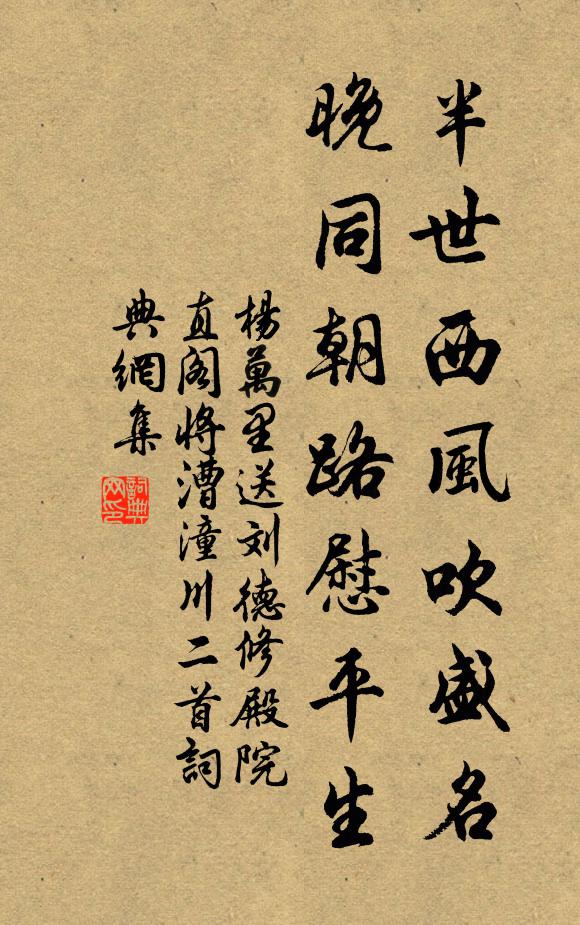 半世西風吹盛名
晚同朝路慰平生
楊萬里送刘德修殿院
直阁将漕潼川二首詞
典網集
詞典
网印